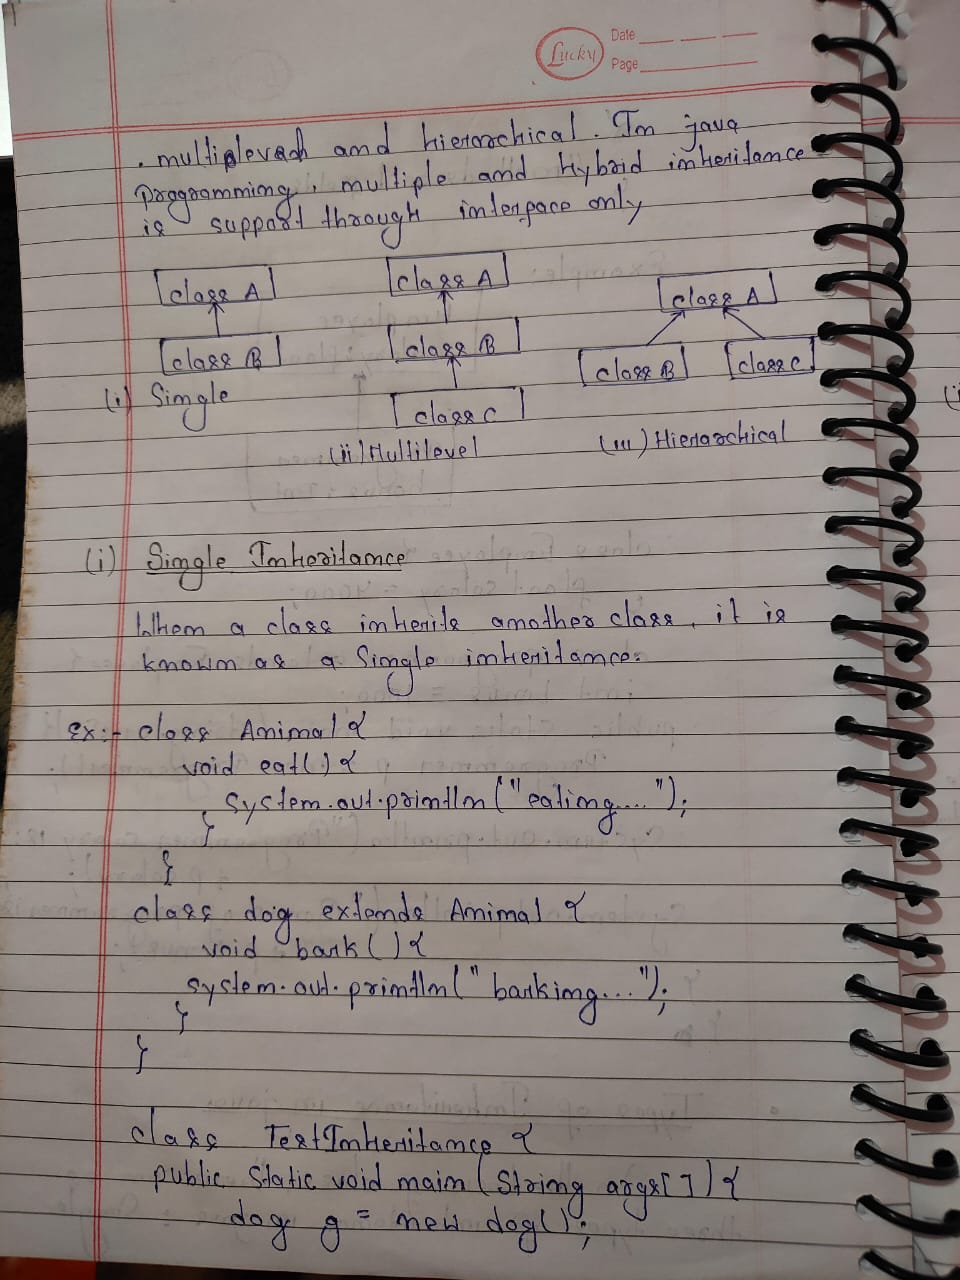 Lucky
Date
Page
. multiplevel and hierarchical. In java
programming, multiple and Hybrid inheritance
is support through interface only
class A
class B
(i) Single
class A
class B
class C
(ii) Multilevel
class A
class B
class C
(iii) Hierarchical
(i) Single Inheritance
When a class inherits another class, it is
known as a Single inheritance.
Ex:- class Animal {
void eat() {
system.out.println("eating....");
}
}
class dog extends Animal {
void bark() {
system.out.println("barking...");
}
}
class TestInheritance {
public static void main(String args[]) {
dog g = new dog();